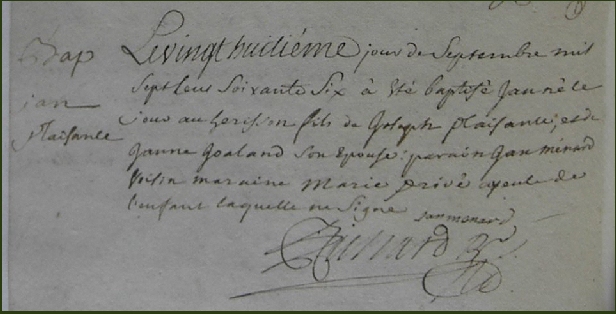 Bap
jan
plaisante
Le vingt huitiéme jour de Septembre mil
Sept Cens Soixante Six à été baptisé Jan né le
jour au herisson fils de Joseph plaisante, et de
Janne Goaland son Epouse: parain Jan ménard
voisin maraine Marie privé ayeule de
l'enfant laquelle ne Signe
Jan menard